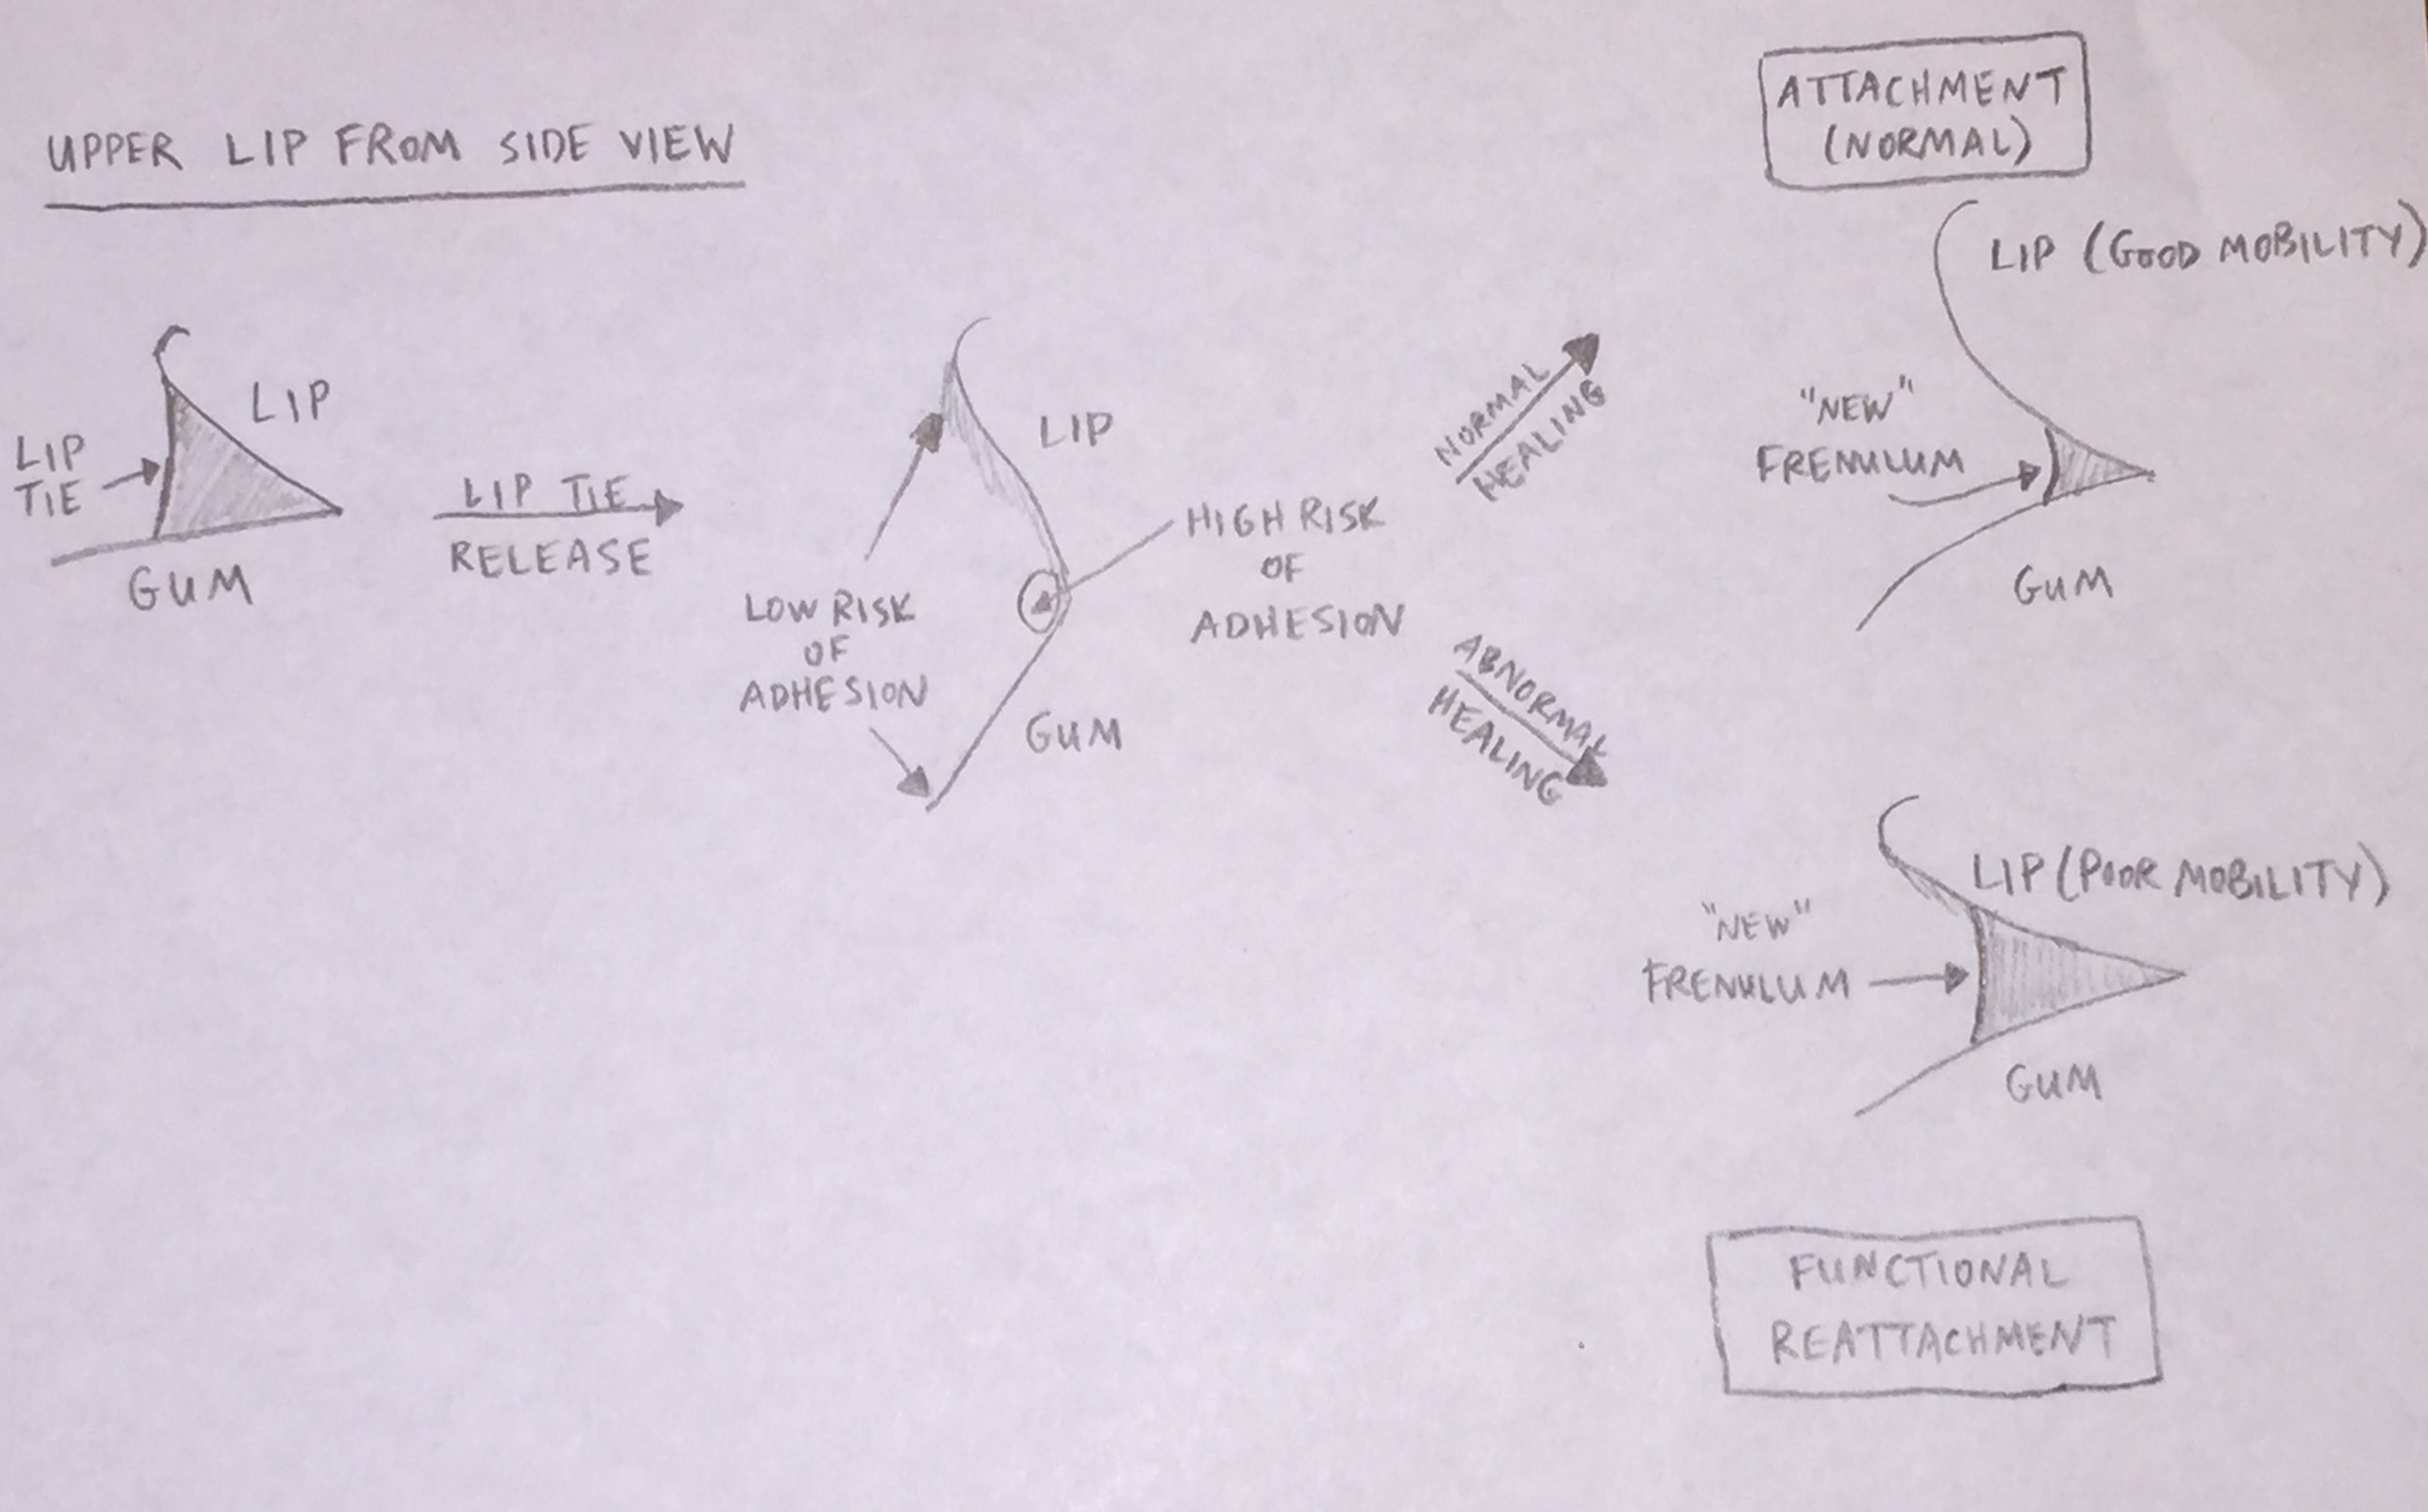 UPPER LIP FROM SIDE VIEW
LIP
LIP
TIE
GUM
LIP TIE
RELEASE
LIP
LOW RISK
OF
ADHESION
HIGH RISK
OF
ADHESION
GUM
NORMAL
HEALING
ABNORMAL
HEALING
ATTACHMENT
(NORMAL)
LIP (GOOD MOBILITY)
"NEW"
FRENULUM
GUM
LIP (POOR MOBILITY)
"NEW"
FRENULUM
GUM
FUNCTIONAL
REATTACHMENT